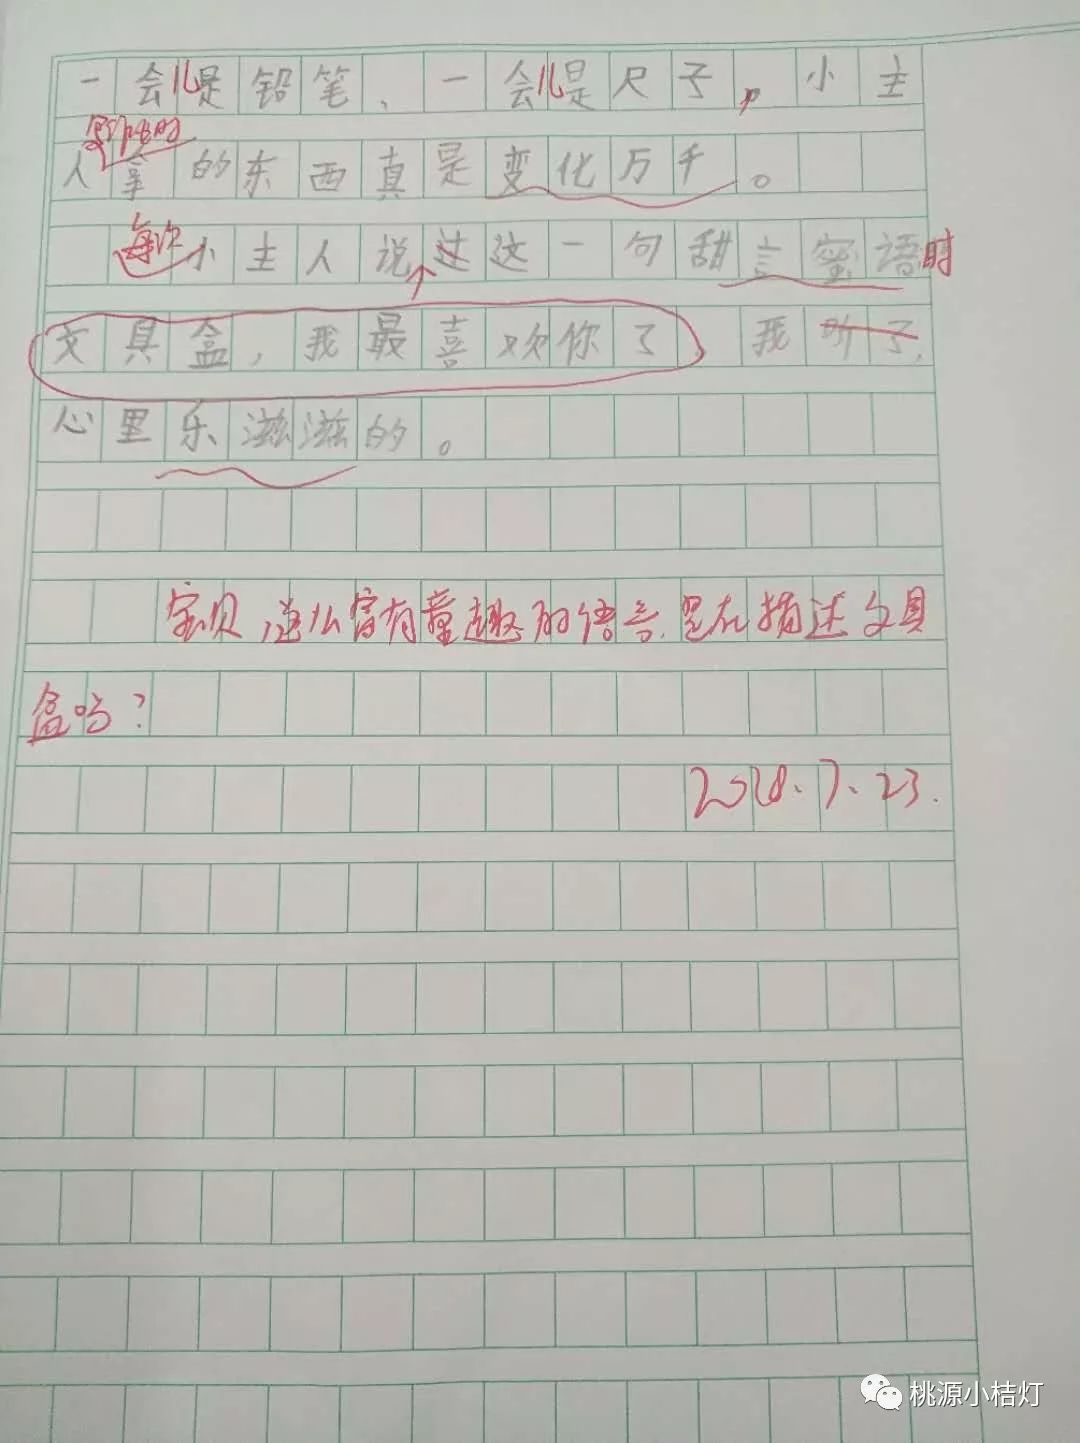 一会儿是铅笔、一会儿是尺子，小主
人拿的东西真是变化万千。
每次小主人说过这一句甜言蜜语时
文具盒，我最喜欢你了，我听了，
心里乐滋滋的。
宝贝，这么富有童趣的语言，是在描述文具
盒吗？
2018.7.23.
桃源小桔灯